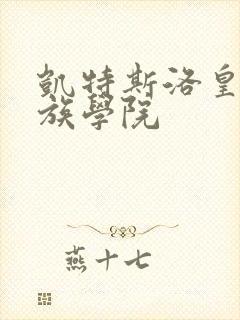 凱特斯洛皇
族學院
燕十七